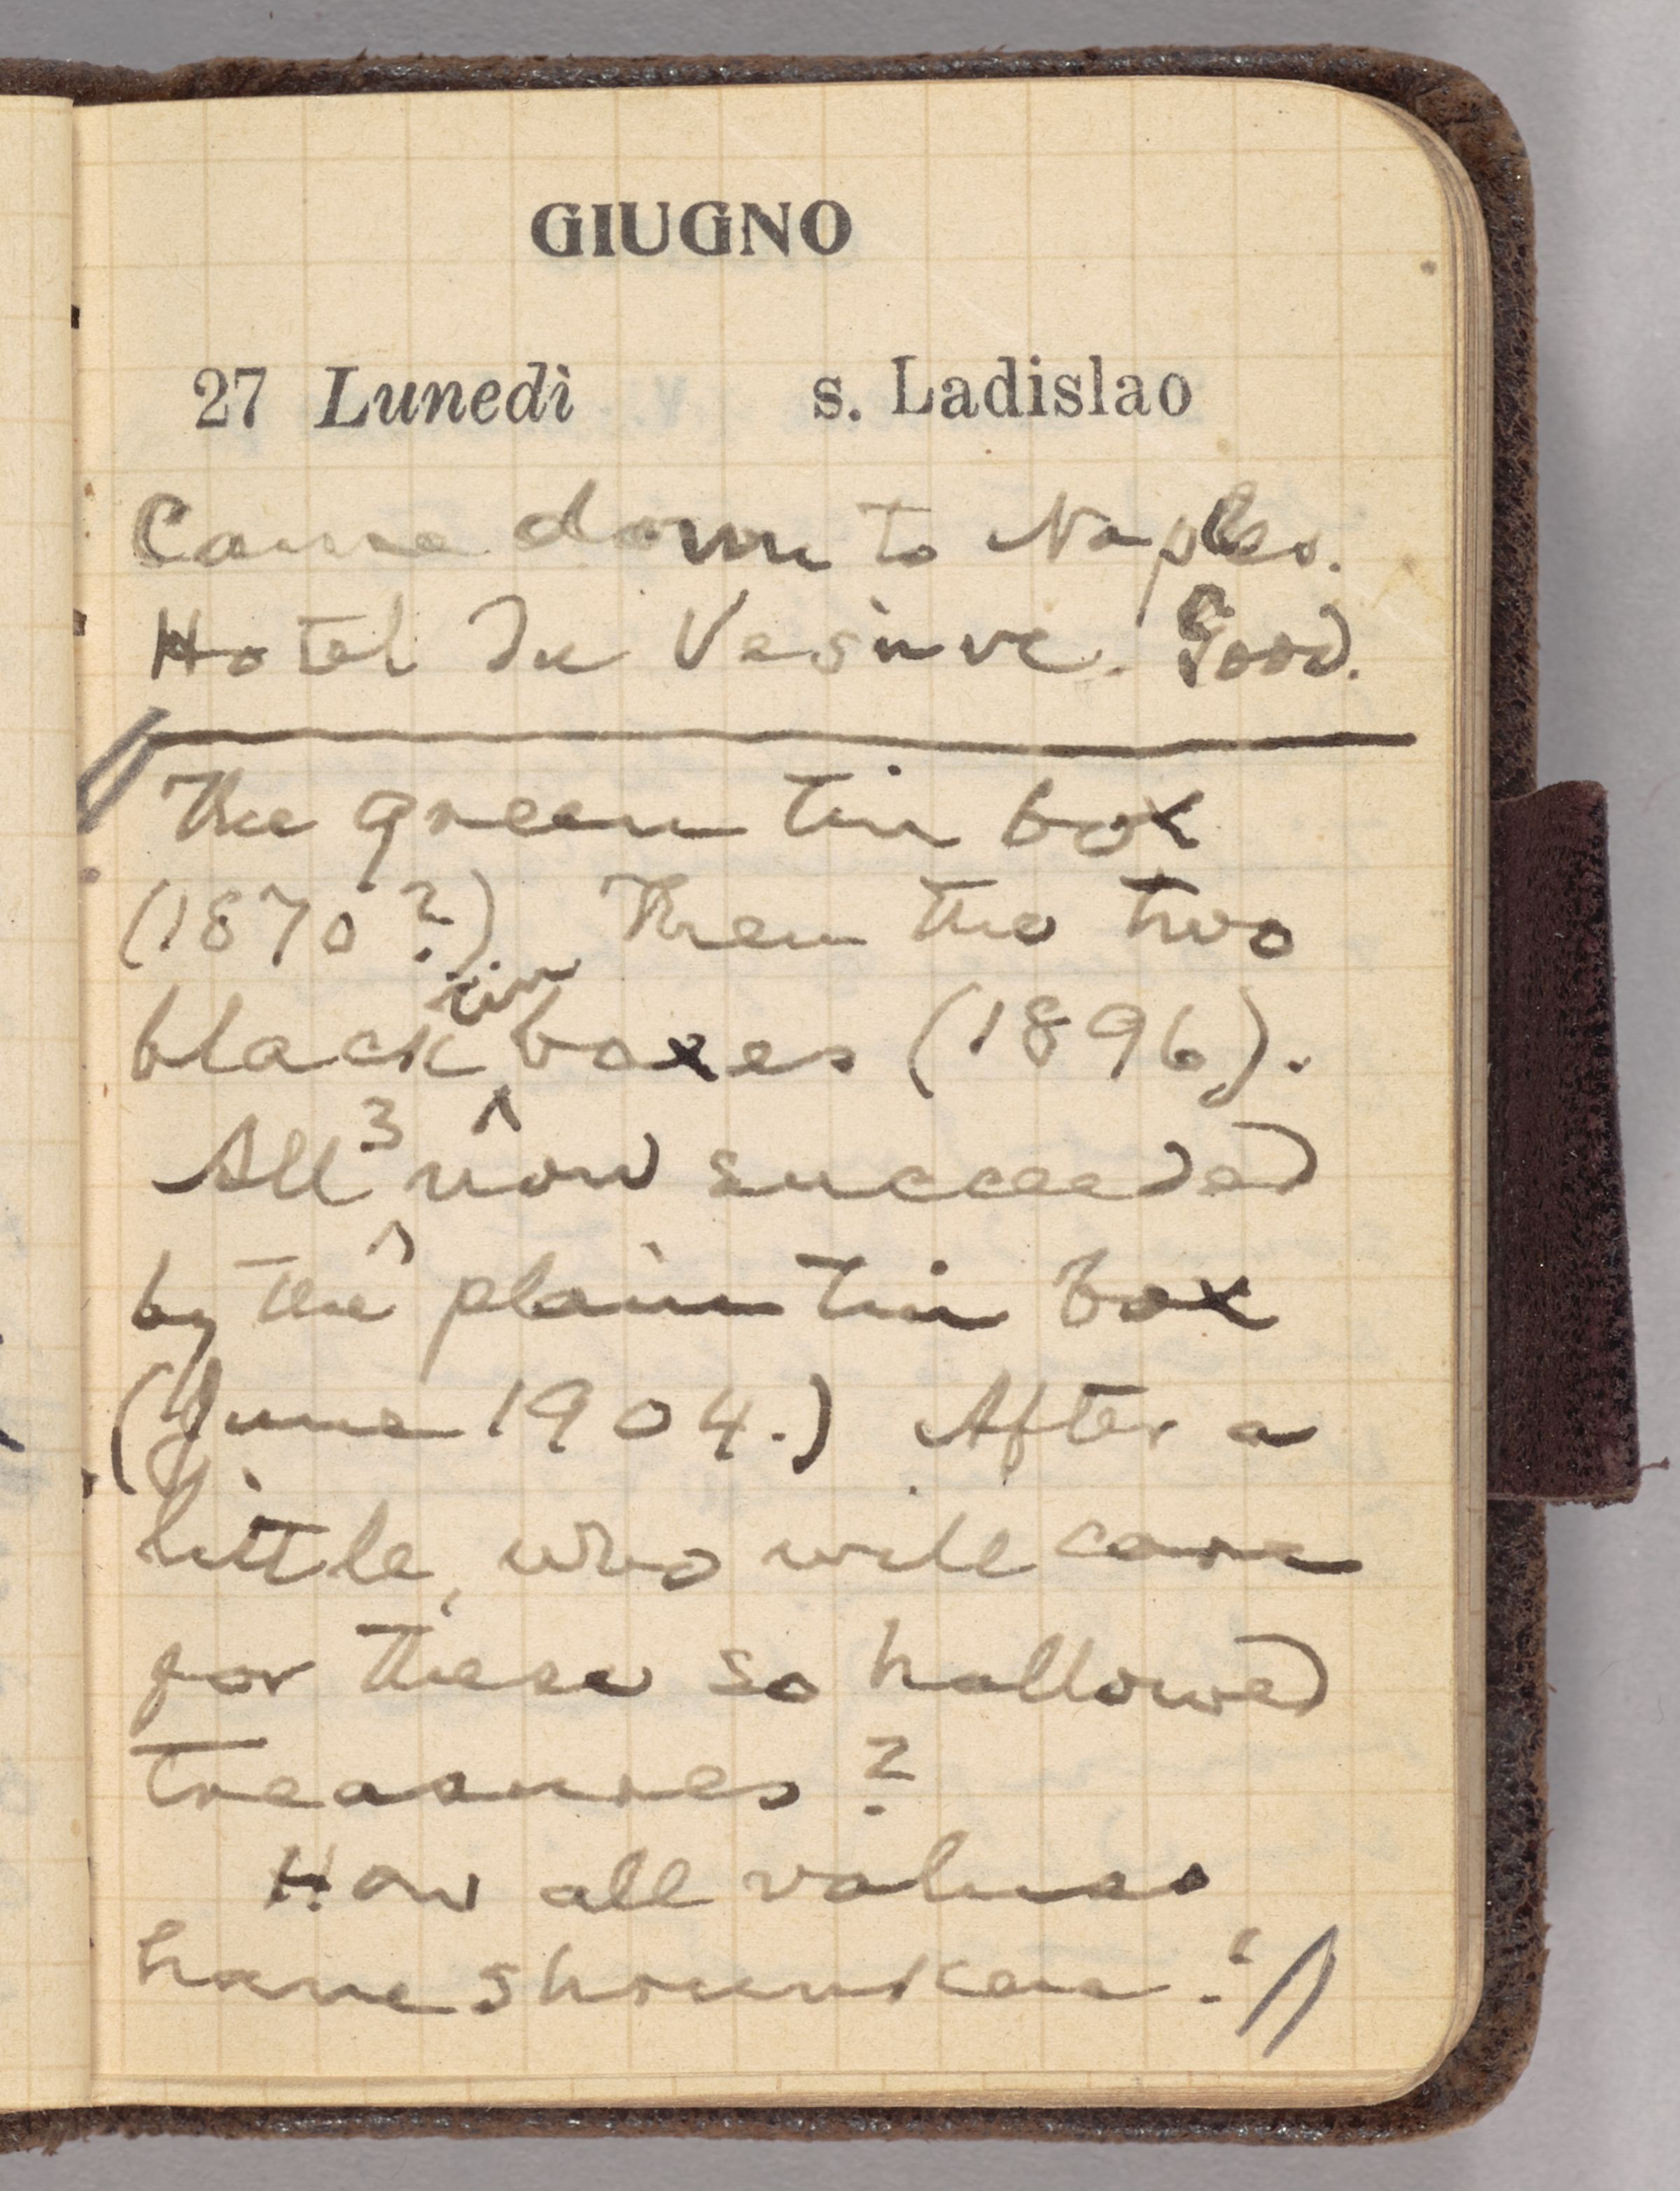 GIUGNO
27 Lunedì s. Ladislao
Came down to Naples.
Hotel du Vesuve. Good.
The green tin box
(1870?) Then the two
black tin boxes (1896).
All 3 now succeeded
by the plain tin box
(June 1904.) After a
little, who will care
for these so hallowed
treasures?
How all values
have shrunken!